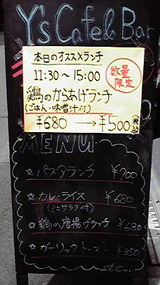 Y's Cafe & Bar
本日のオススメランチ
11:30〜15:00
数量限定
鶏のからあげランチ
(ごはん・味噌汁付)
¥680→¥500(税込)
MENU
☆パスタランチ ¥700
☆カレーライス ¥650
(ミニサラダ付)
☆鶏の唐揚ランチ ¥680
☆ガーリックトースト ¥350
etc...